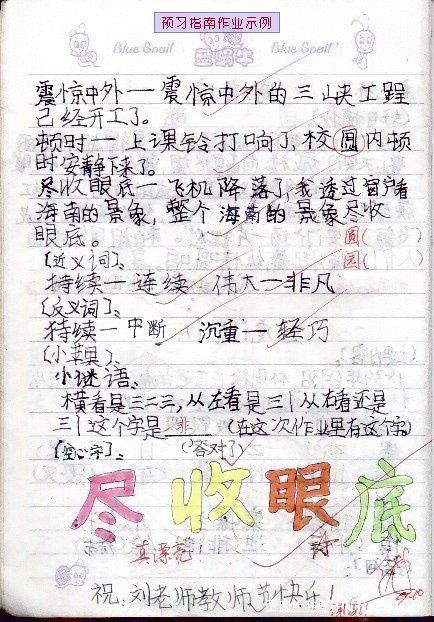 预习指南作业示例
Blue Snail 蓝蜗牛 Blue Snail
震惊中外一震惊中外的三峡工程
已经开工了。
顿时一上课铃打响了,校圆内顿
时安静下来了。
尽收眼底一飞机降落了,我透过窗户看
海南的景象,整个海南的景象尽收
眼底。
圆( )
〔近义词〕、
园( )
持续一连续 伟大一非凡
〔反义词〕、
持续一中断 沉重一轻巧
(小苹果)、
小谜语、
横看是三二三,从左看是三丨从右看还是
三丨这个字是 非 (在这次作业里有这个字)
〔空心字〕、 (答对了)
尽收眼底
真漂亮!
祝:刘老师教师节快乐!
谢谢!